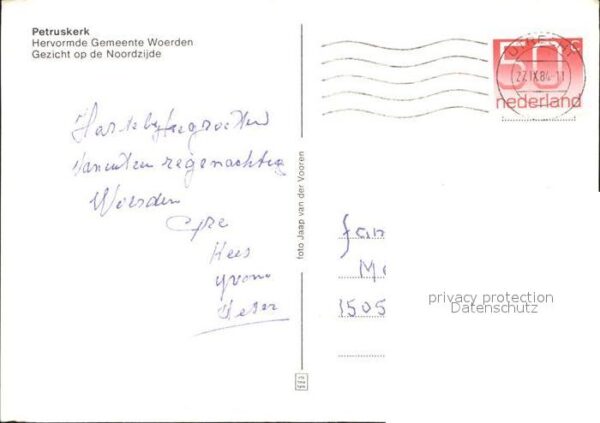 Petruskerk
Hervormde Gemeente Woerden
Gezicht op de Noordzijde
UTRECHT
27.IX.84-11
50c
nederland
Hartelijke groeten
vanuit een regenachtig
Woerden
Kees
Yvonne
Peter
foto Jaap van der Vooren
fam
Ma
1505
privacy protection
Datenschutz